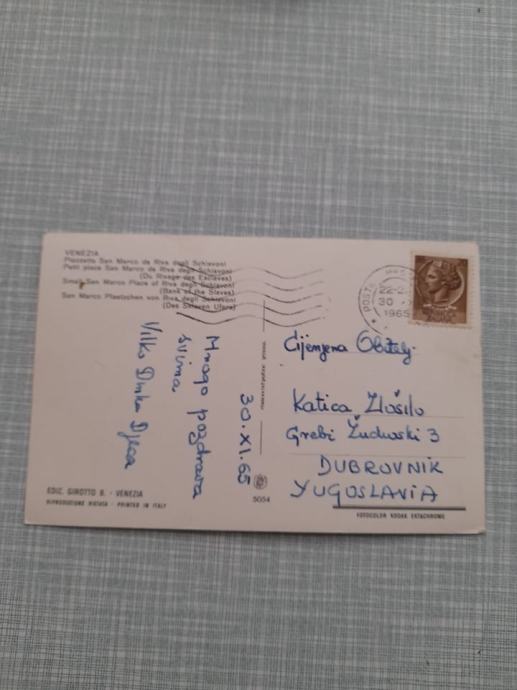 VENEZIA
Piazzetta San Marco da Riva degli Schiavoni
Petit place San Marco de Riva degli Schiavoni
(Du Rivage des Esclaves)
Small San Marco Place of Riva degli Schiavoni
(Bank of the Slaves)
San Marco Plaetzchen von Riva degli Schiavoni
(Des Sklaven Ufers)
30.XI.65
Mnogo pozdrava
svima
Vilko Dinko Djeca
EDIZ. GIROTTO B. - VENEZIA
RIPRODUZIONE VIETATA - PRINTED IN ITALY
5054
POSTE
22-2
30
1965
Cijenjena Obitelj
Katica Zlošilo
Grebi Žudioski 3
DUBROVNIK
YUGOSLAVIA
FOTOCOLOR KODAK EKTACHROME